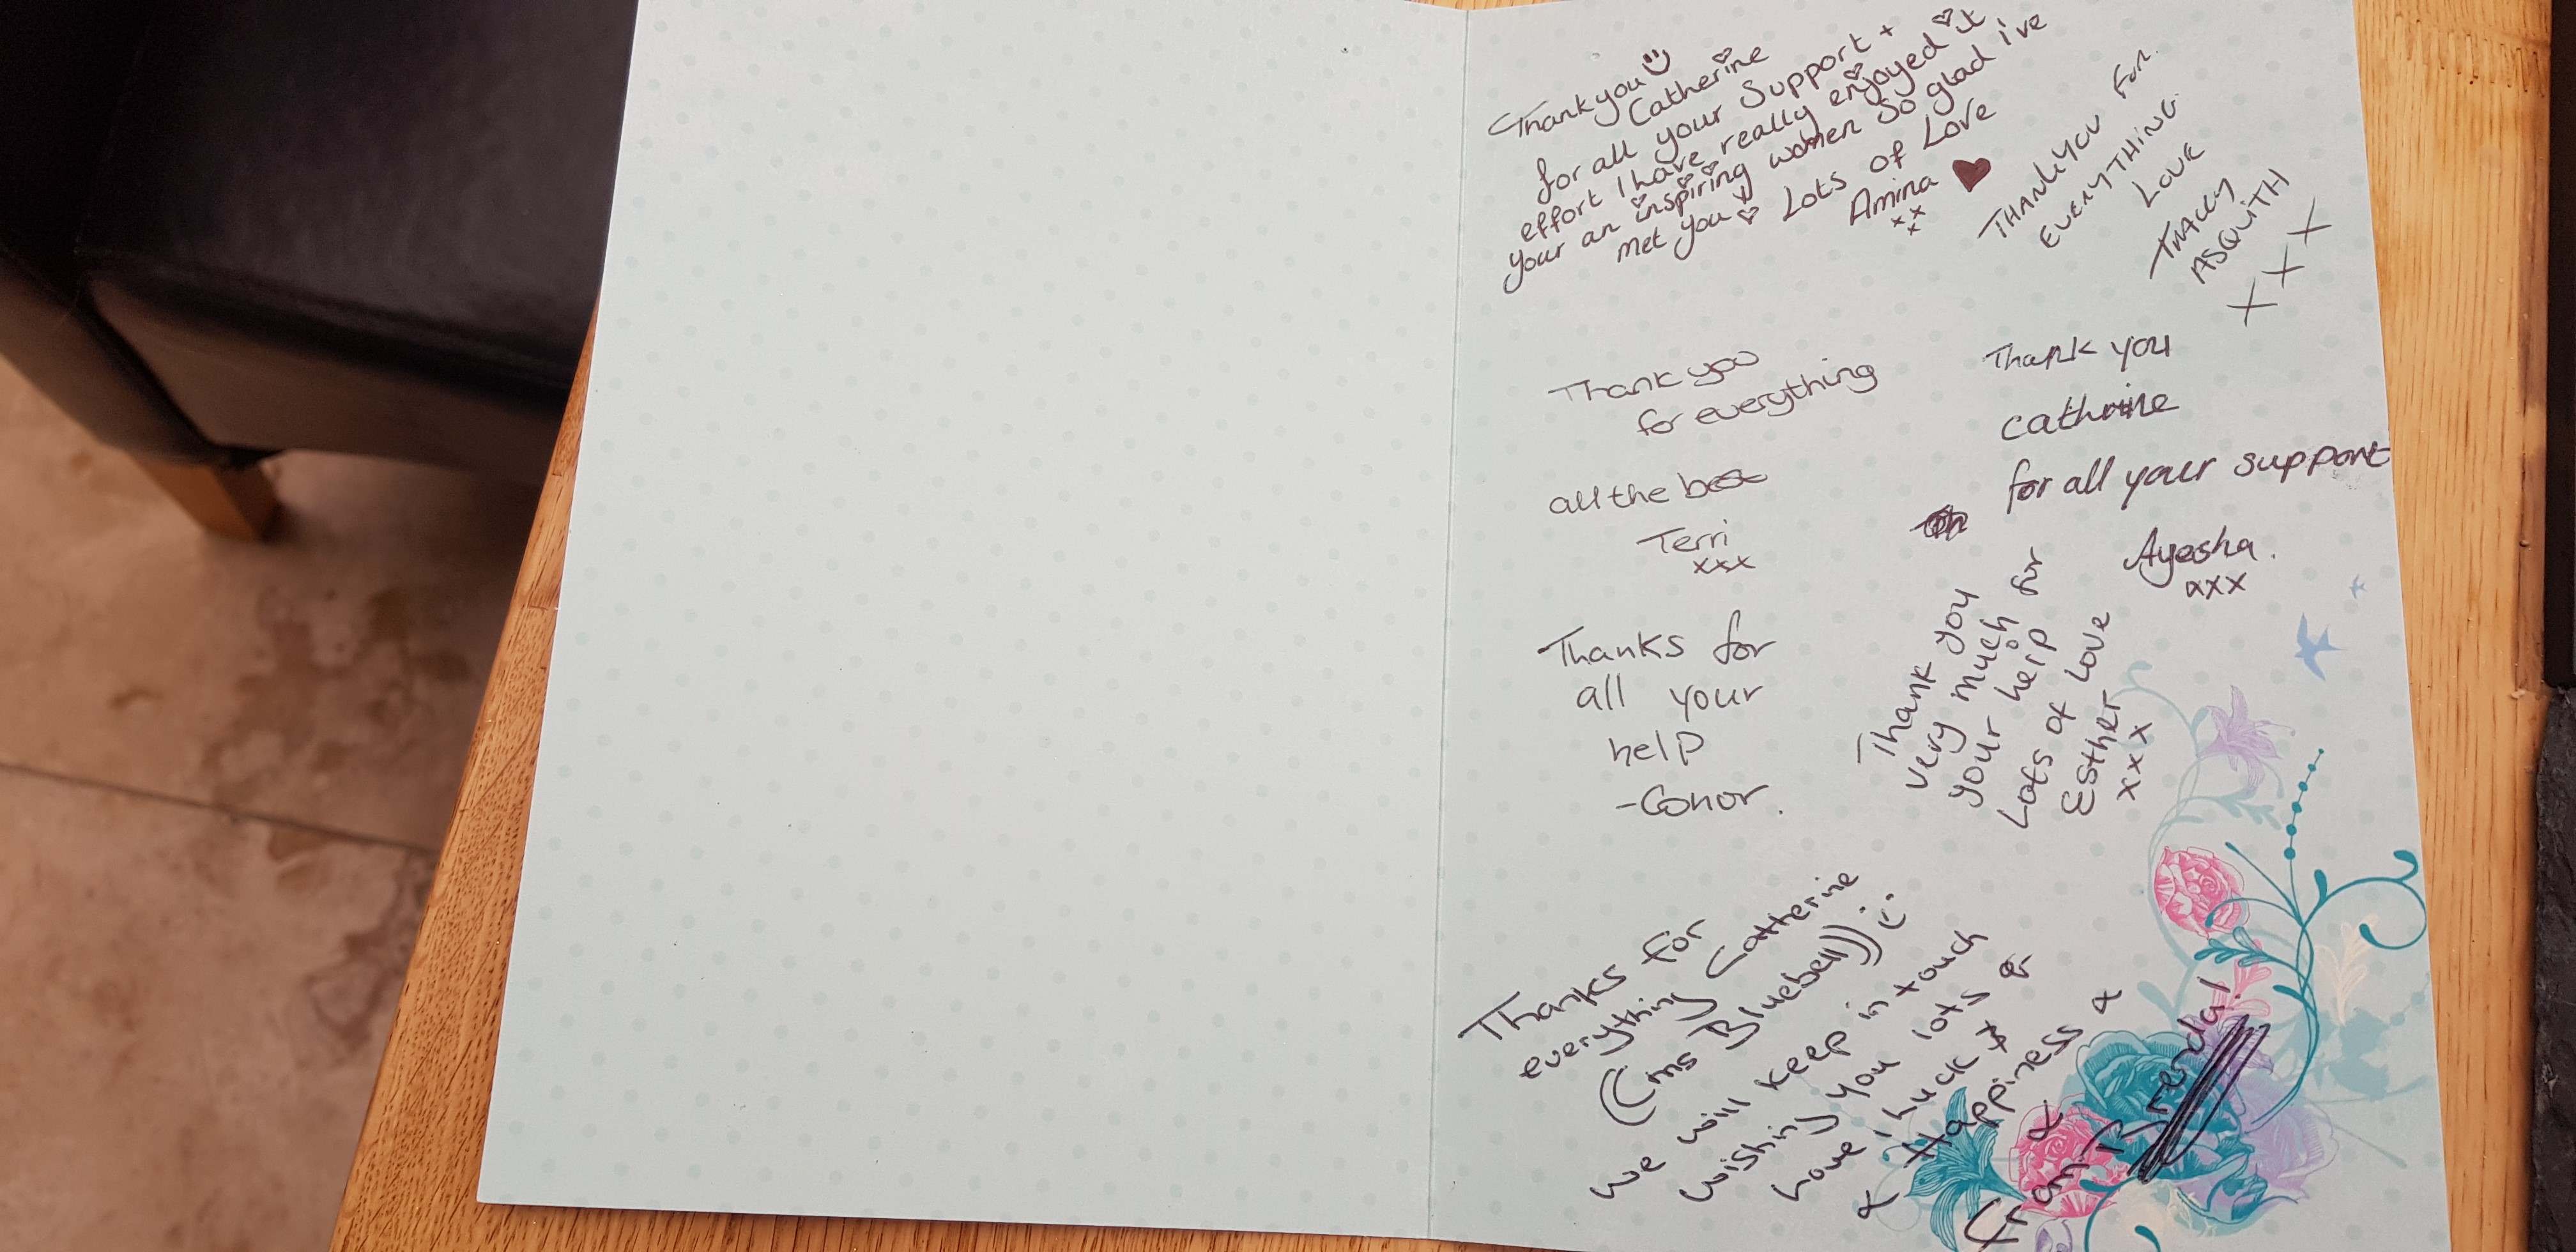 Thankyou
Catherine
for all your Support +
effort I have really enjoyed it
your an inspiring women so glad i've
met you Lots of Love
Amina
xx
x
THANKYOU FOR
EVERYTHING.
LOVE
TRACEY
ASQUITH
X X X
Thank you
for everything
all the best
Terri
xxx
Thank you
cathrine
for all your support
Ayesha.
xxx
Thanks for
all your
help
-Conor.
Thank you
very much for
your help
Lots of Love
Esther
xxx
Thanks for
everything Catherine
((ms Bluebell))
we will keep in touch
wishing you lots of
Love, Luck &
Happiness x
From Brenda!